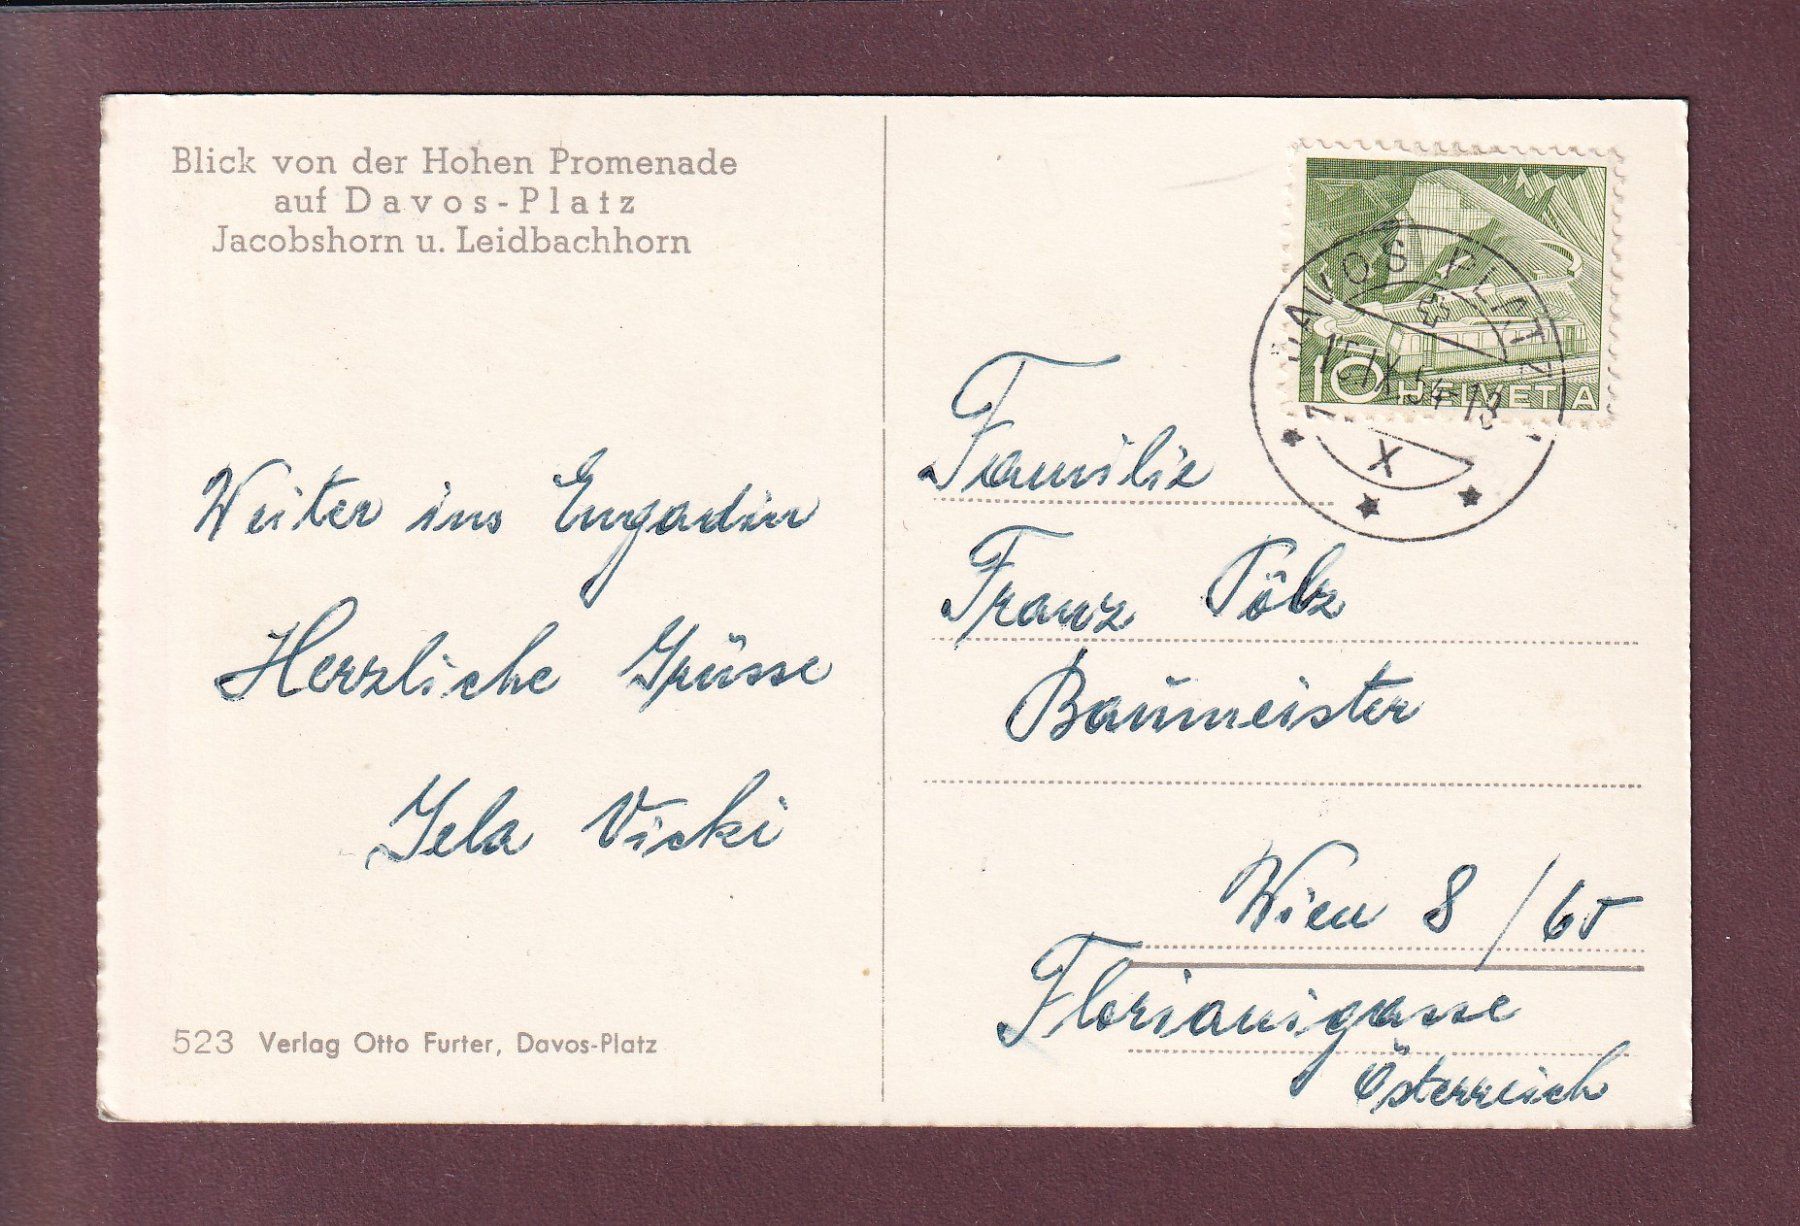 Blick von der Hohen Promenade
auf Davos-Platz
Jacobshorn u. Leidbachhorn
Weiter ins Engadin
Herzliche Grüsse
Jela Vicki
523 Verlag Otto Furter, Davos-Platz
10 HELVETIA
DAVOS PLATZ
15.IX.54-13
X
Familie
Franz Pölz
Baumeister
Wien 8/65
Florianigasse
Österreich